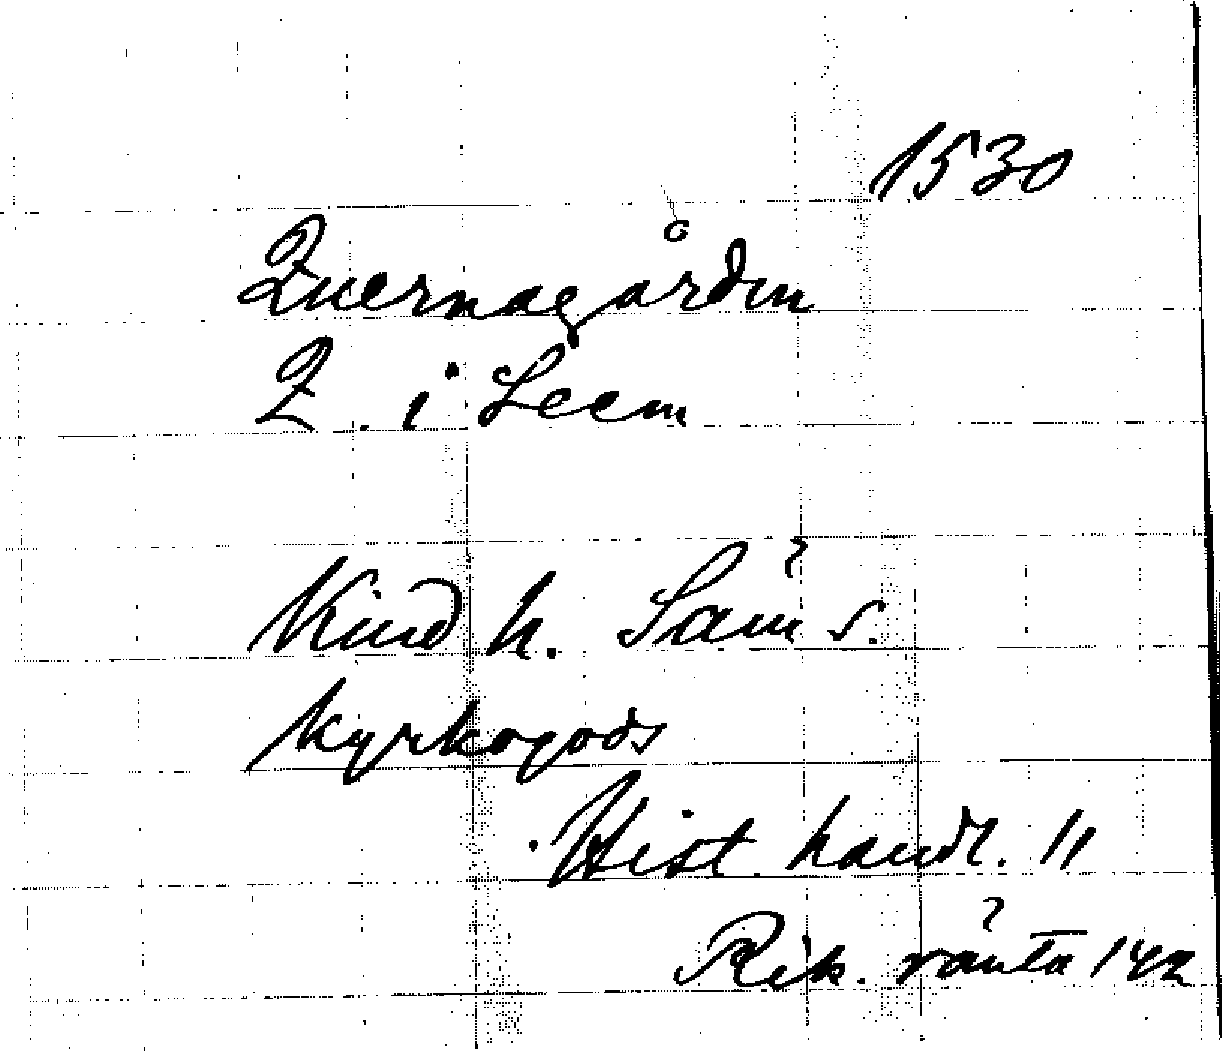 1530
Quernagården
Q. i Leem
Kind h. Säm s.
kyrkogods
Hist. handl. 11
Rik. ränta 142